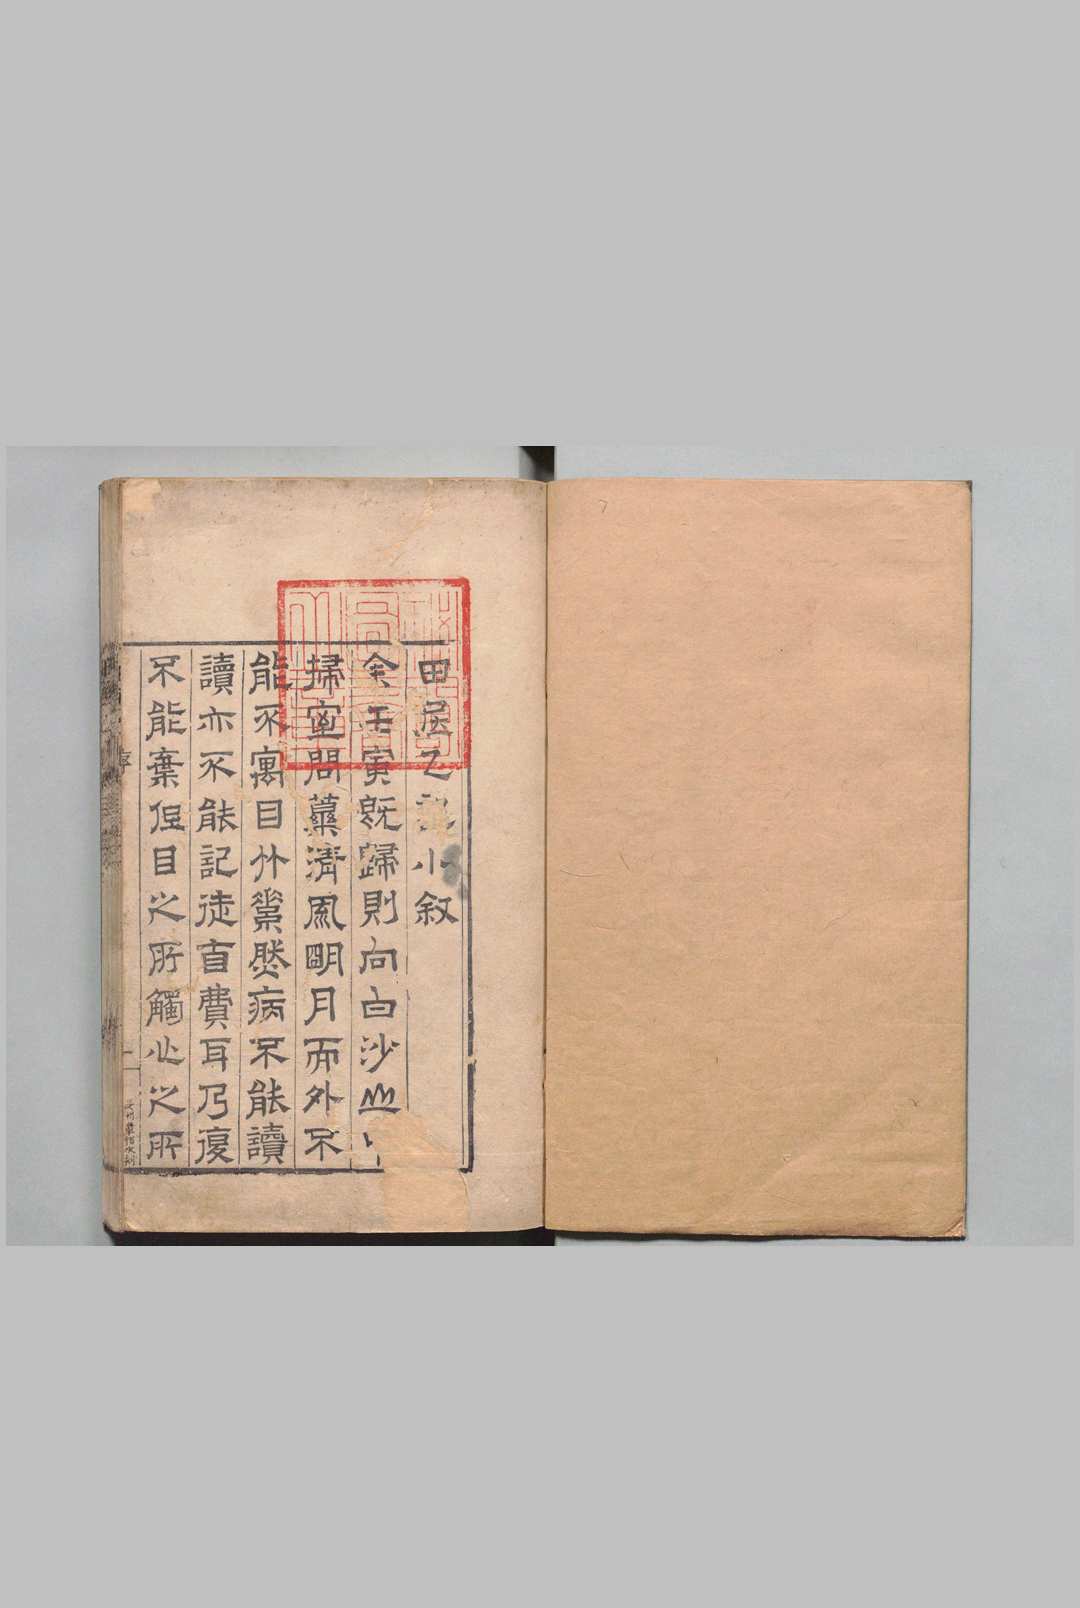 田居乙記小叙
余壬寅既歸則向白沙山中
掃室問藥清風明月而外不
能不寓目竹素然病不能讀
讀亦不能記徒自費耳乃復
不能棄但目之所觸心之所
序
一